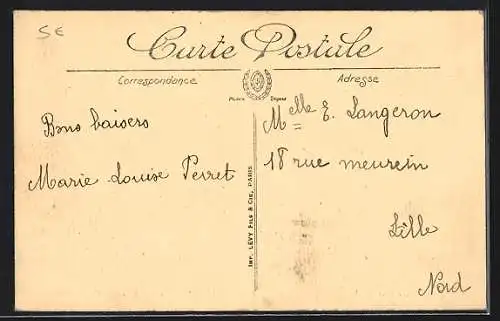 5€
Carte Postale
Correspondance
Adresse
Bons baisers
Marie Louise Perret
IMP. LÉVY FILS & CIE, PARIS
Melle E. Langeron
18 rue meurein
Lille
Nord